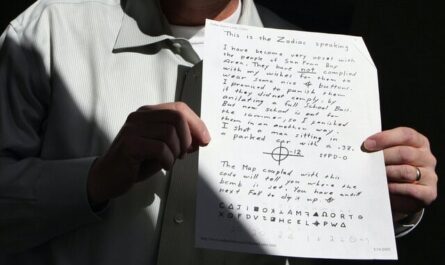 This is the Zodiac speaking
I have become very upset with
the people of San Fran Bay
Area. They have not complied
with my wishes for them to
wear some nice ⌖ buttons.
I promised to punish them
if they did not comply, by
anilating a full School Buss.
But now school is out for
the summer, so I punished
them in an another way.
I shot a man sitting in
a parked car with a .38.
⌖-12 SFPD-0
The Map coupled with this
code will tell you where the
bomb is set. You have untill
next Fall to dig it up. ⌖